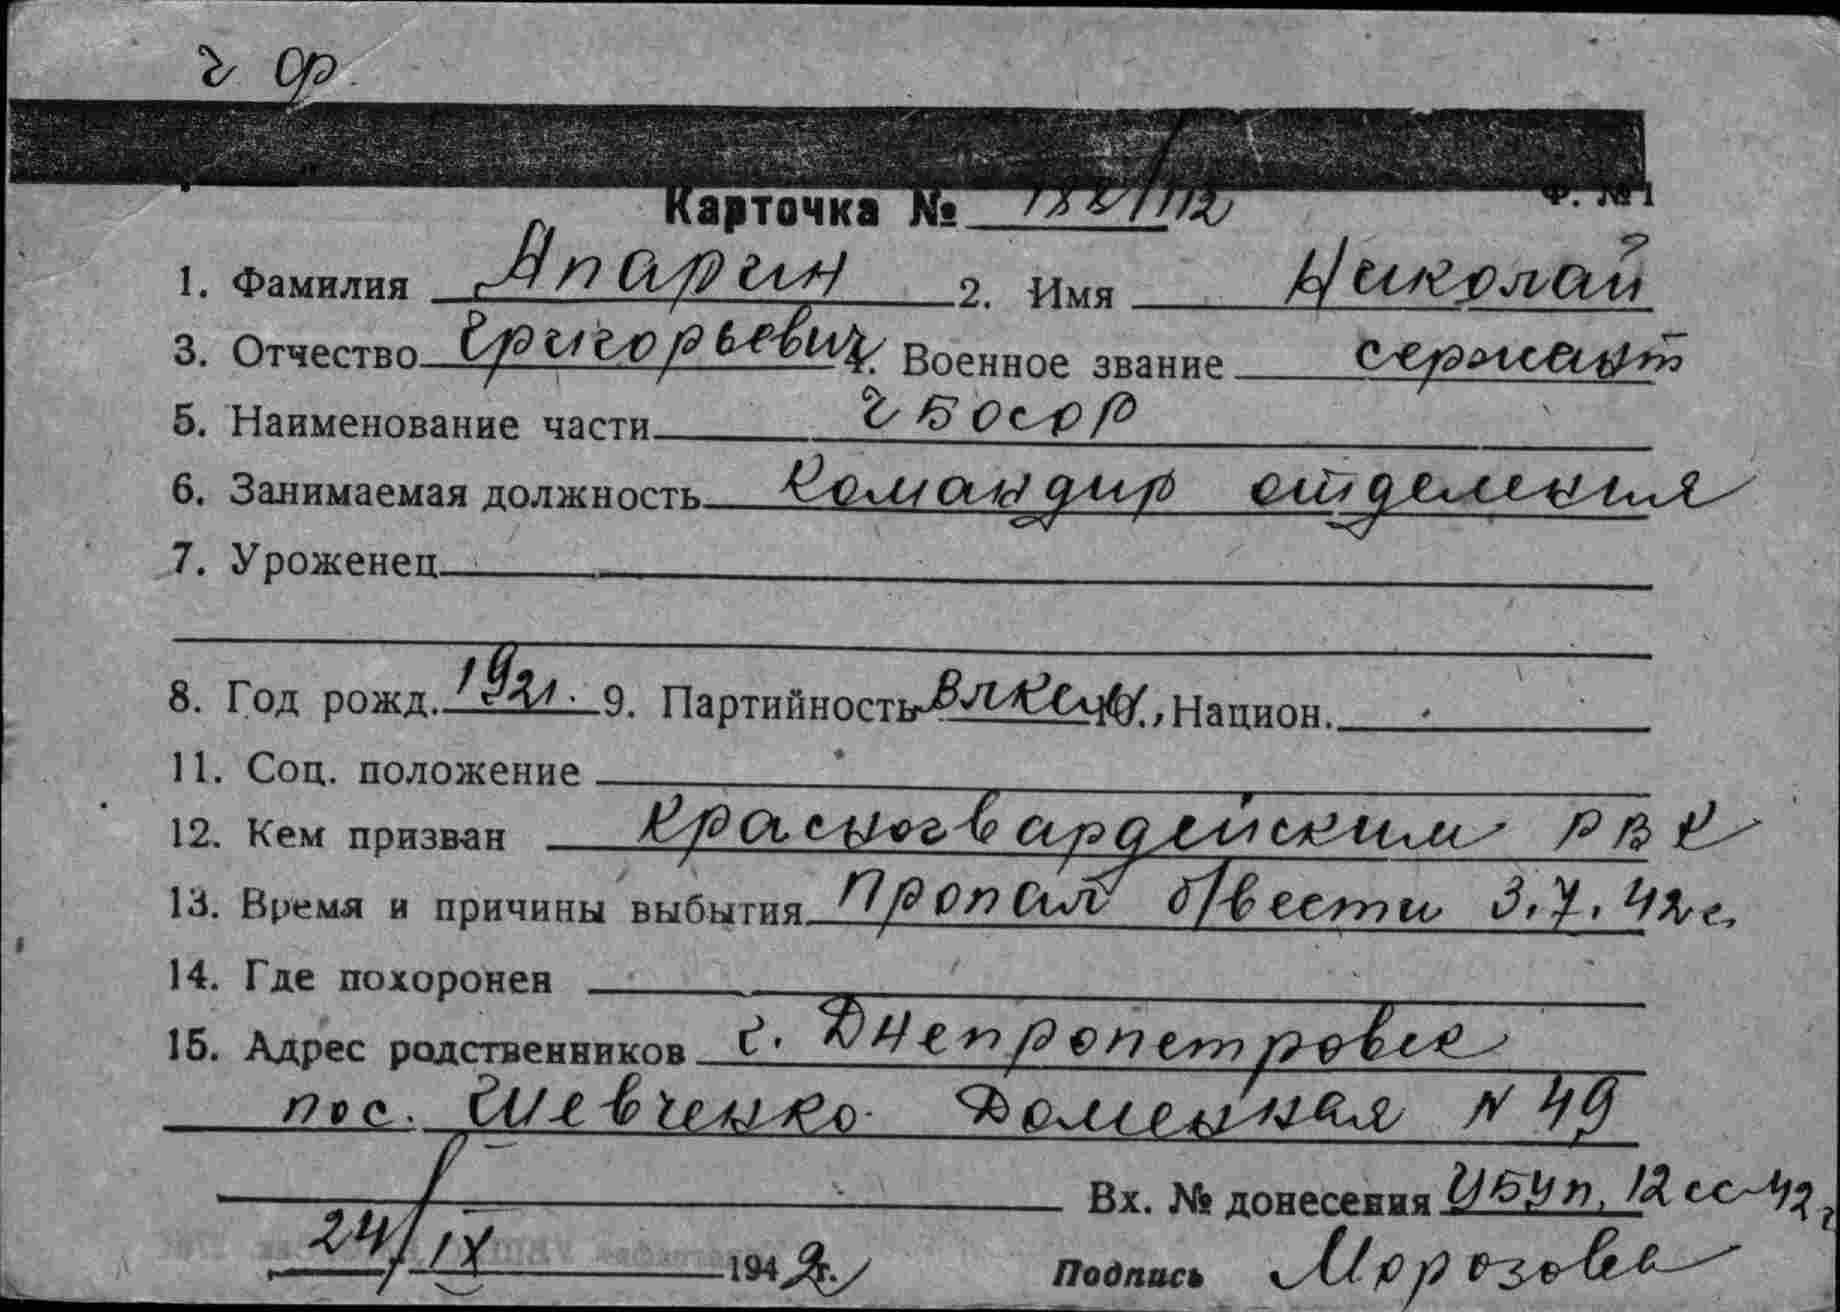 Ф. № 1
Карточка № 188/112
1. Фамилия Апарин 2. Имя Николай
3. Отчество Григорьевич 4. Военное звание сержант
5. Наименование части ЧБОСОР
6. Занимаемая должность Командир отделения
7. Уроженец
8. Год рожд. 1921. 9. Партийность ВЛКСМ, Национ.
11. Соц. положение
12. Кем призван Красногвардейским РВК
13. Время и причины выбытия Пропал б/вести 3.7.42г.
14. Где похоронен
15. Адрес родственников г. Днепропетровск
пос. Шевченко Доменная N 49
Вх. № донесения 12 сс-42г
24/IX 1942г. Подпись Морозова